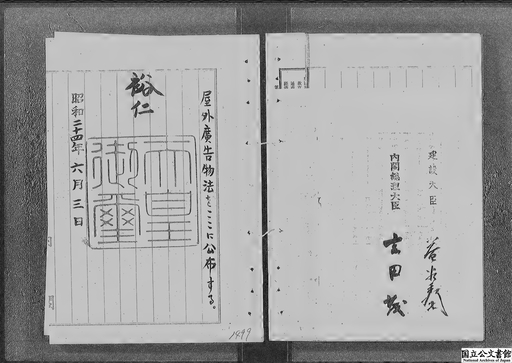 屋外廣告物法をここに公布する。
裕仁
天皇御璽
昭和二十四年六月三日
内閣總理大臣
吉田茂
建設大臣
益谷秀次
1899
国立公文書館
National Archives of Japan